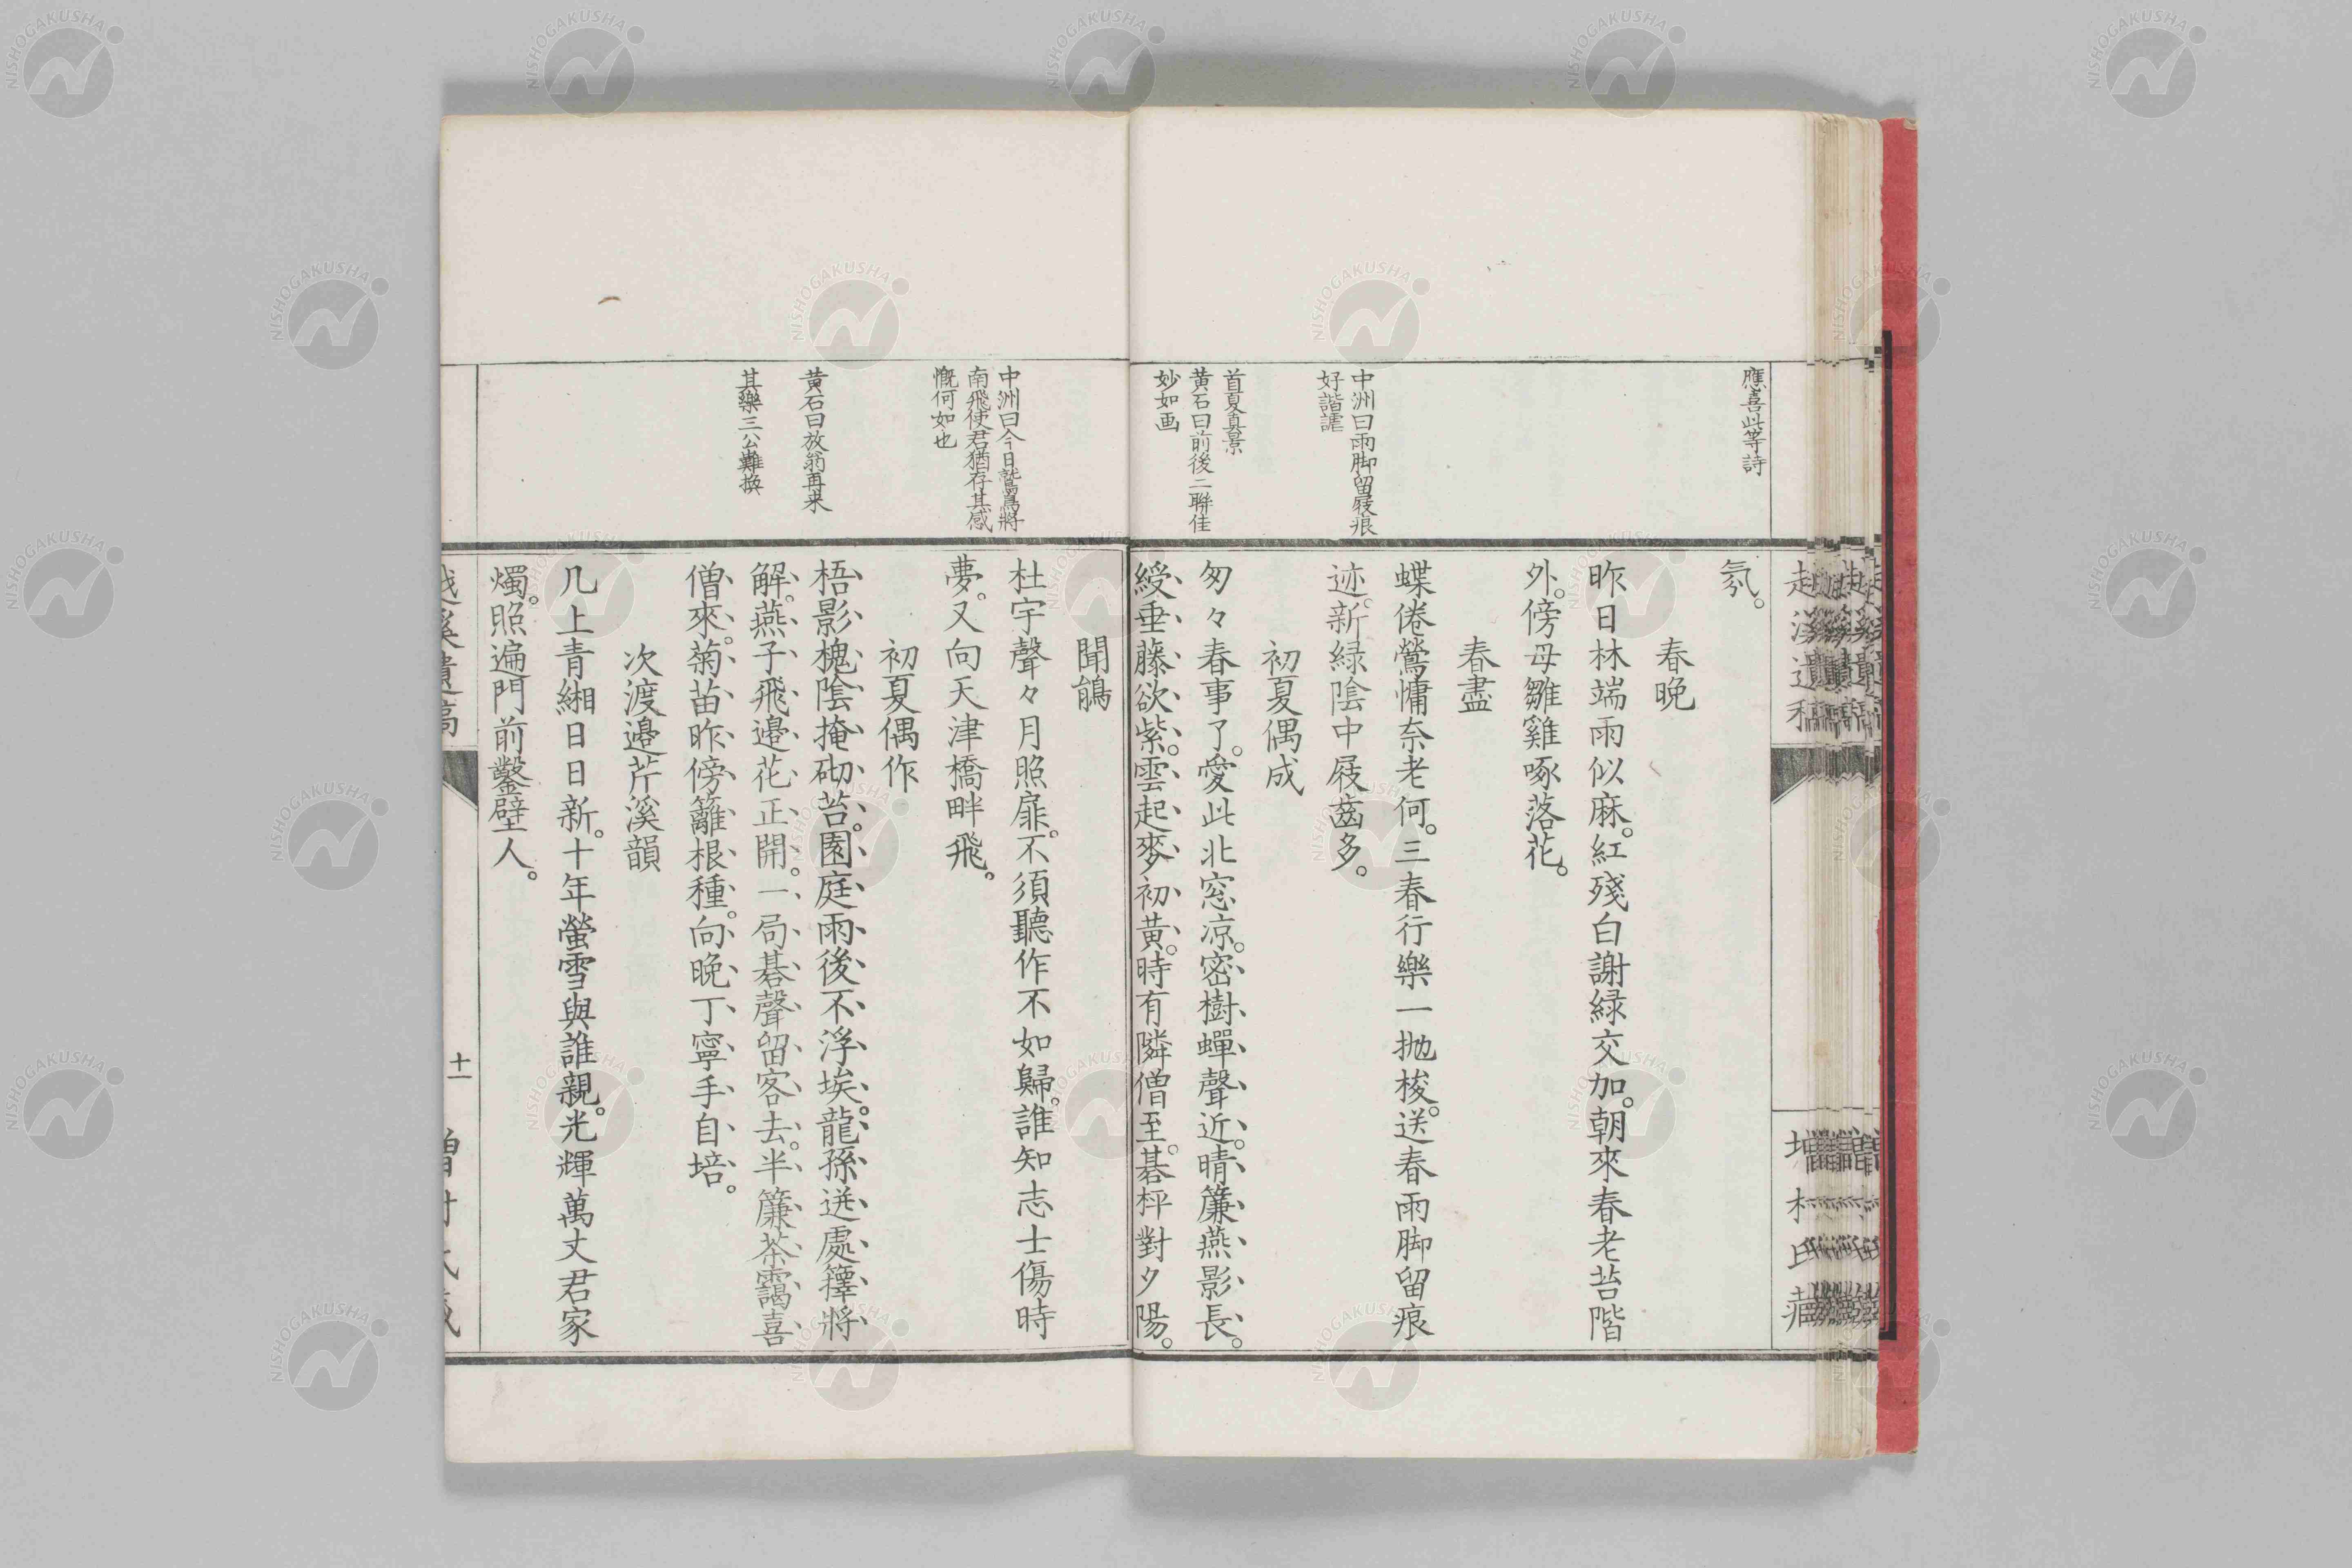 應喜此等詩
氛。
春晩
昨日林端雨似麻。紅殘白謝緑交加。朝來春老苔階
外。傍母雛雞啄落花。
春盡
中洲曰雨脚留屐痕
好諧謔
蝶倦鶯慵奈老何。三春行樂一抛梭。送春雨脚留痕
迹。新緑陰中屐齒多。
初夏偶成
首夏真景
黄石曰前後二聯佳
妙如画
匆々春事了。愛此北窓凉。密樹蟬聲近。晴簾燕影長。
綬垂藤欲紫。雲起麥初黄。時有隣僧至。碁枰對夕陽。
聞鵑
中洲曰今日鷲鳥將
南飛使君猶存其感
慨何如也
杜宇聲々月照扉。不須聽作不如歸。誰知志士傷時
夢。又向天津橋畔飛。
初夏偶作
黄石曰放翁再来
其樂三公難換
梧影槐陰掩砌苔。園庭雨後不浮埃。龍孫迸處籜將
解。燕子飛邊花正開。一局碁聲留客去。半簾茶靄喜
僧來。菊苗昨傍籬根種。向晩丁寧手自培。
次渡邉芹溪韻
几上青緗日日新。十年螢雪與誰親。光輝萬丈君家
燭。照遍門前鑿壁人。
十一
NISHOGAKUSHA